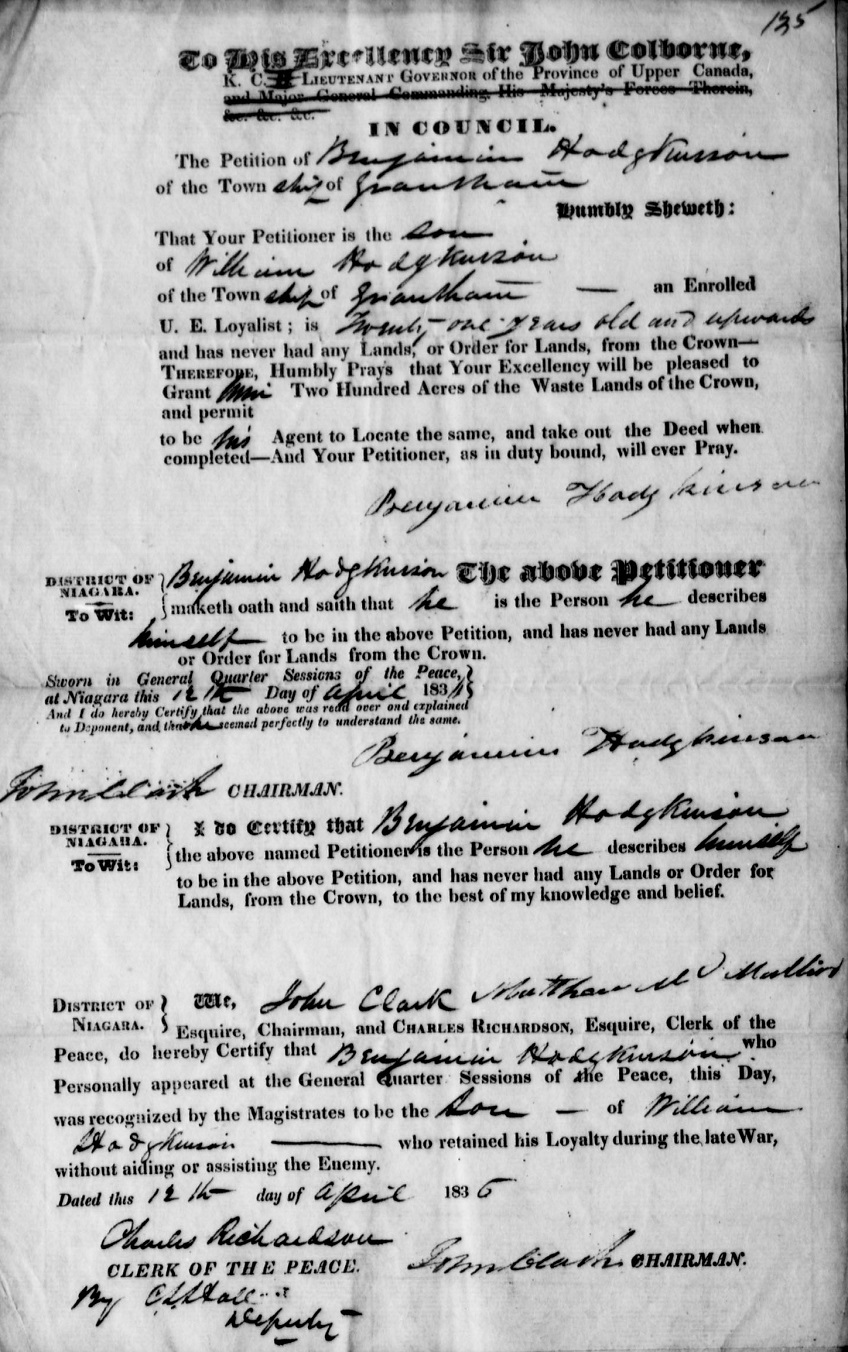 135
To His Excellency Sir John Colborne,
K. C. B. LIEUTENANT GOVERNOR of the Province of Upper Canada,
and Major General Commanding His Majesty's Forces Therein,
&c. &c. &c.
IN COUNCIL.
The Petition of Benjamin Hodgkinson
of the Town ship of Grantham
Humbly Sheweth:
That Your Petitioner is the son
of William Hodgkinson
of the Town ship of Grantham — an Enrolled
U. E. Loyalist; is Twenty one years old and upwards
and has never had any Lands, or Order for Lands, from the Crown—
THEREFORE, Humbly Prays that Your Excellency will be pleased to
Grant him Two Hundred Acres of the Waste Lands of the Crown,
and permit
to be his Agent to Locate the same, and take out the Deed when
completed—And Your Petitioner, as in duty bound, will ever Pray.
Benjamin Hodgkinson
DISTRICT OF NIAGARA. To Wit: Benjamin Hodgkinson The above Petitioner
maketh oath and saith that he is the Person he describes
himself to be in the above Petition, and has never had any Lands
or Order for Lands from the Crown.
Sworn in General Quarter Sessions of the Peace,
at Niagara this 12th Day of April 183
And I do hereby Certify that the above was read over and explained
to Deponent, and that he seemed perfectly to understand the same.
Benjamin Hodgkinson
John Clark CHAIRMAN.
DISTRICT OF NIAGARA. To Wit: I do Certify that Benjamin Hodgkinson
the above named Petitioner is the Person he describes himself
to be in the above Petition, and has never had any Lands or Order for
Lands, from the Crown, to the best of my knowledge and belief.
DISTRICT OF NIAGARA. We, John Clark Matthew
Esquire, Chairman, and CHARLES RICHARDSON, Esquire, Clerk of the
Peace, do hereby Certify that Benjamin Hodgkinson who
Personally appeared at the General Quarter Sessions of the Peace, this Day,
was recognized by the Magistrates to be the Son — of William
Hodgkinson — who retained his Loyalty during the late War,
without aiding or assisting the Enemy.
Dated this 12th day of April 1836
Charles Richardson
CLERK OF THE PEACE. John Clark CHAIRMAN.
By Hall
Deputy